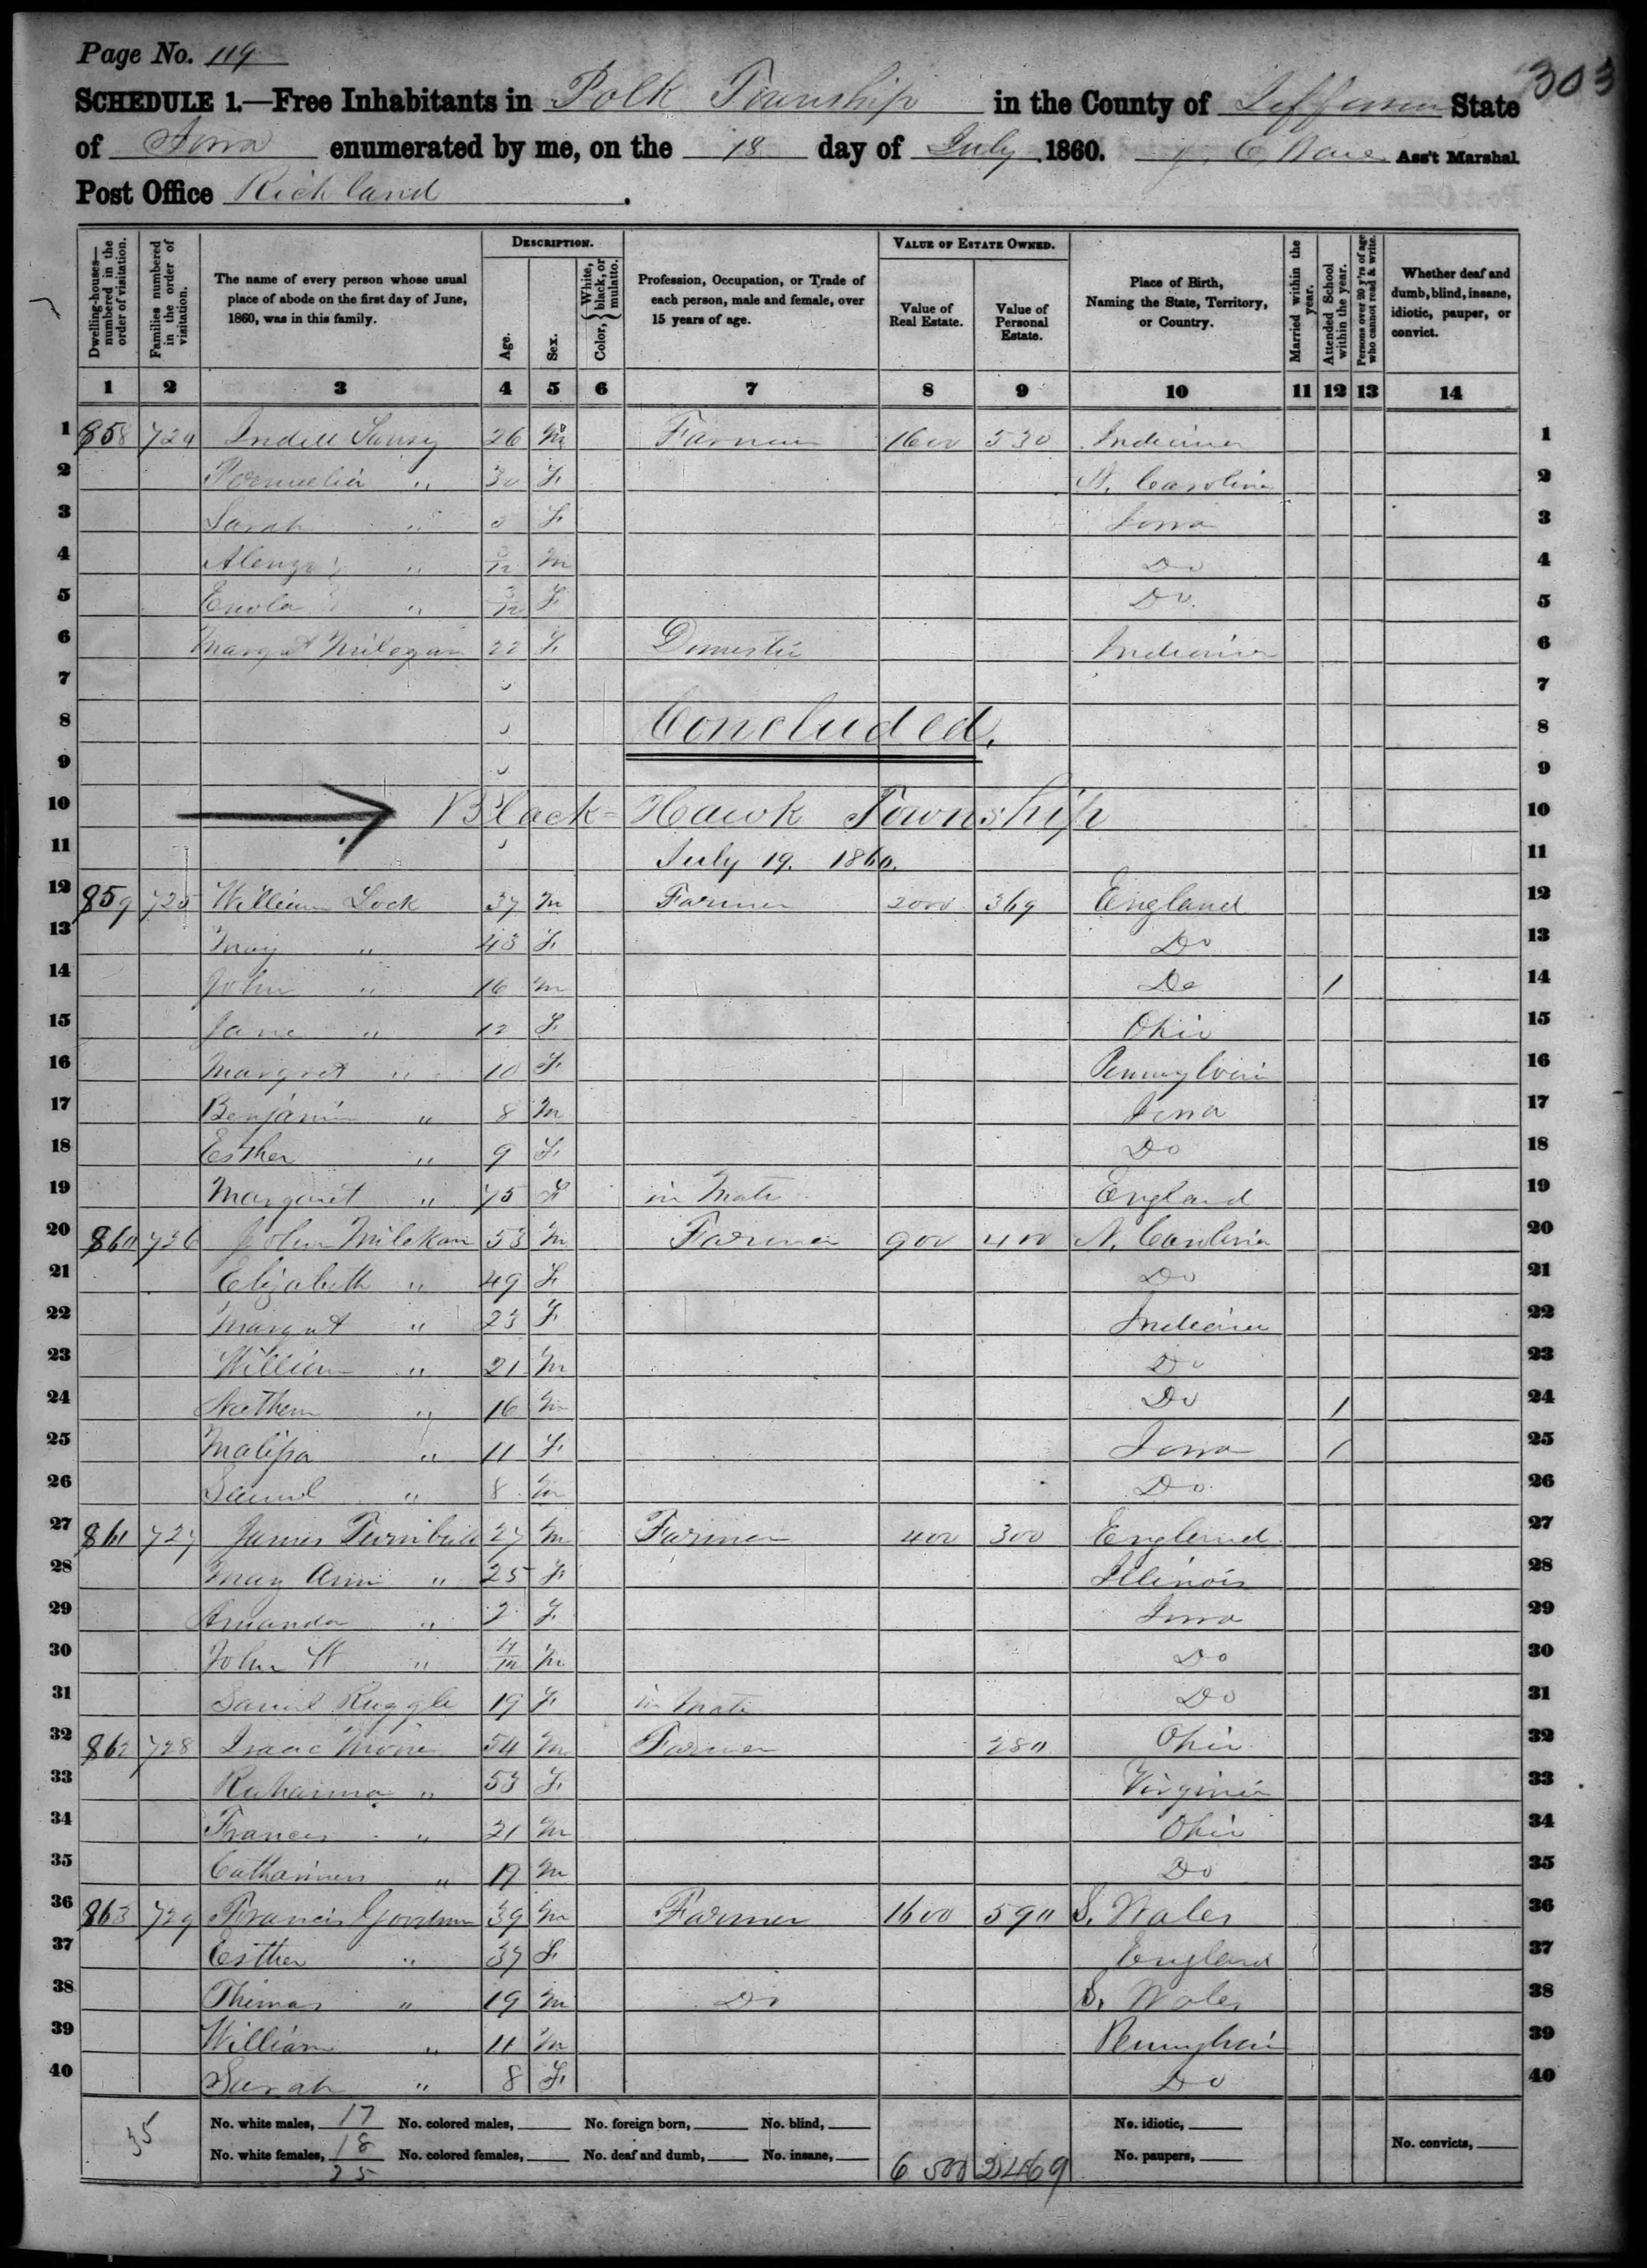 Page No. 119
303
SCHEDULE 1.—Free Inhabitants in Polk Township in the County of Jefferson State
of Iowa enumerated by me, on the 18 day of July 1860. Ass't Marshal.
Post Office Richland.
Dwelling-houses—numbered in the order of visitation.
Families numbered in the order of visitation.
The name of every person whose usual place of abode on the first day of June, 1860, was in this family.
DESCRIPTION.
Age.
Sex.
Color, { White, black, or mulatto.
Profession, Occupation, or Trade of each person, male and female, over 15 years of age.
VALUE OF ESTATE OWNED.
Value of Real Estate.
Value of Personal Estate.
Place of Birth, Naming the State, Territory, or Country.
Married within the year.
Attended School within the year.
Persons over 20 y'rs of age who cannot read & write.
Whether deaf and dumb, blind, insane, idiotic, pauper, or convict.
1 2 3 4 5 6 7 8 9 10 11 12 13 14
1 858 724 26 M Farmer 1600 530 Indiana 1
2 " 30 F N. Carolina 2
3 Sarah " F Iowa 3
4 Alonzo " M Do 4
5 Enola " F Do 5
6 Margret Milegan 22 F Domestic Indiana 6
7 7
8 Concluded. 8
9 9
10 Black-Hawk Township 10
11 July 19. 1860. 11
12 859 725 William Lock 37 M Farmer 2000 369 England 12
13 May " 43 F Do 13
14 John " 16 M Do 1 14
15 Jane " 12 F Ohio 15
16 Margret " 10 F 16
17 Benjamin " 8 M Iowa 17
18 Esther " 9 F Do 18
19 Margaret " 75 F in Mate England 19
20 860 726 John Milekan 53 M Farmer 900 400 N. Carolina 20
21 Elizabeth " 49 F Do 21
22 Margret " 23 F Indiana 22
23 William " 21 M Do 23
24 Nathan " 16 M Do 1 24
25 Malissa " 11 F Iowa 1 25
26 " 8 M Do 26
27 861 727 James Turnbull 27 M Farmer 400 300 England 27
28 May Ann " 25 F Illinois 28
29 Amanda " 2 F Iowa 29
30 John W " M Do 30
31 Ruggle 19 F in Mate Do 31
32 862 728 Isaac 54 M Farmer 280 Ohio 32
33 " 53 F Virginia 33
34 Francis " 21 M Ohio 34
35 " 19 M Do 35
36 863 729 Francis Goodman 39 M Farmer 1600 590 S. Wales 36
37 Esther " 37 F England 37
38 Thomas " 19 M Do S. Wales 38
39 William " 11 M 39
40 Sarah " 8 F Do 40
35
No. white males, 17 No. colored males, No. foreign born, No. blind, No. idiotic,
No. white females, 18 No. colored females, No. deaf and dumb, No. insane, No. paupers, No. convicts,
6 500 2469